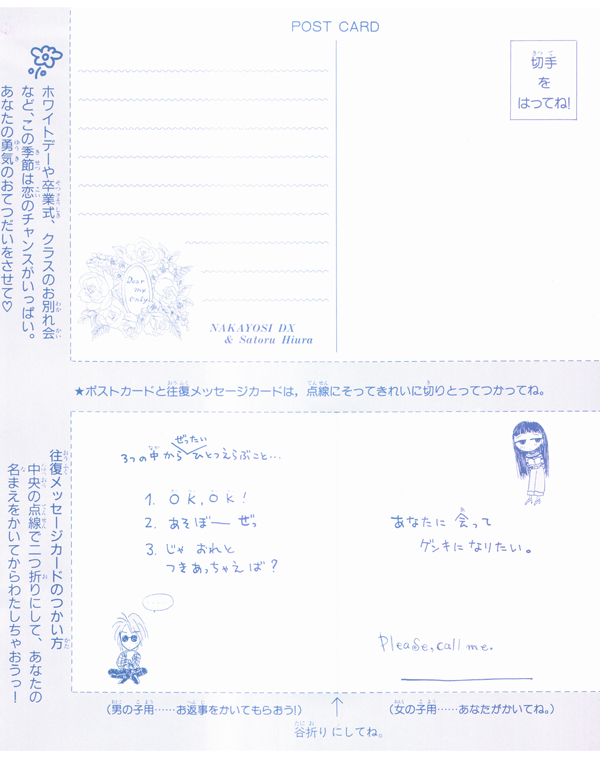 POST CARD
切手
を
はってね!
ホワイトデーや卒業式、クラスのお別れ会
など、この季節は恋のチャンスがいっぱい。
あなたの勇気のおてつだいをさせて♡
Dear
my
only
NAKAYOSI DX
& Satoru Hiura
★ポストカードと往復メッセージカードは，点線にそってきれいに切りとってつかってね。
往復メッセージカードのつかい方
中央の点線で二つ折りにして、あなたの
名まえをかいてからわたしちゃおうっー
ぜったい
3つの中からひとつえらぶこと…
1. OK, OK!
2. あそぼー ぜっ
3. じゃ おれと
つきあっちゃえば?
あなたに会って
ゲンキになりたい。
Please, call me.
(男の子用……お返事をかいてもらおう!)
↑
谷折りにしてね。
(女の子用……あなたがかいてね。)